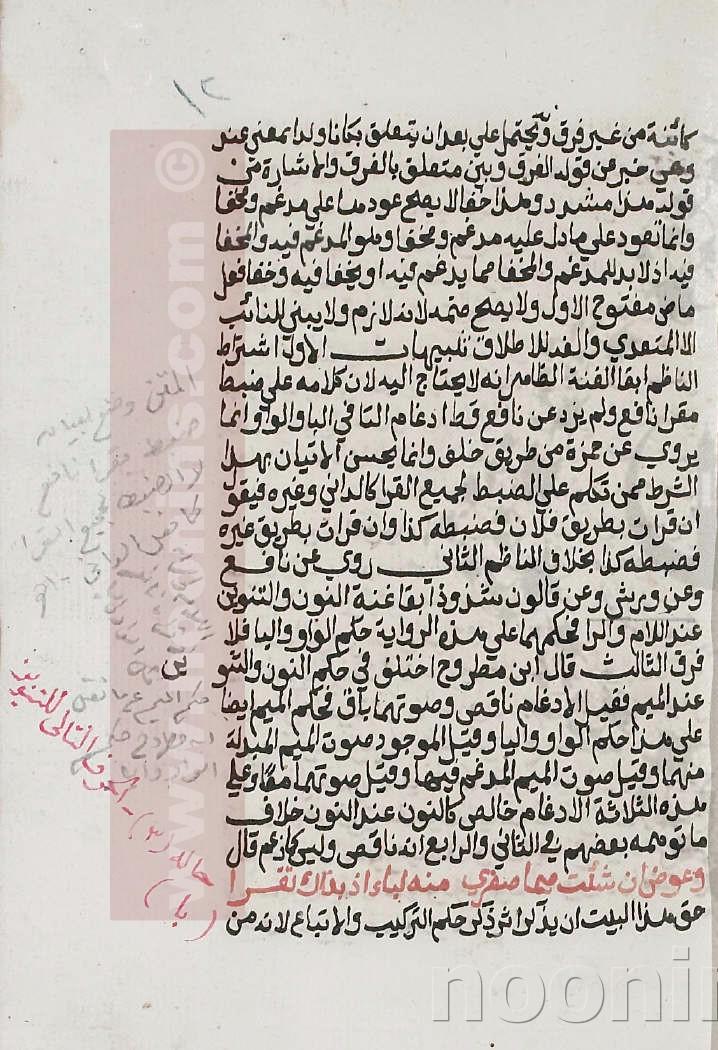 ١٢
كائنة من غير فرق ويحتمل على بعد ان يتعلق بكانا ولدا بمعنى عند
وهي خبر عن قوله الفرق وبين متعلق بالفرق والاشارة من
قوله هذا مشدد وهذا خفا لا يصلح عودها على مدغم ومخفا
وانما تعود على ما دل عليه مدغم ومخفا وهو المدغم فيه والمخفا
فيه اذ لا بد للمدغم والمخفا مما يدغم فيه او يخفا فيه وخفا فعل
ماض مفتوح الاول ولا يصح ضمه لانه لازم ولا يبنى للنائب
الا المتعدي والفه للاطلاق تنبيهات الاول اشتراط
الناظم ابقا الغنة الظاهر انه لا يحتاج اليه لان كلامه على ضبط
مقرا نافع ولم يرد عن نافع قط ادغام التا في اليا والواو وانما
يروي عن حمزة من طريق خلف وانما يحسن الاتيان بهذا
الشرط ممن تكلم على الضبط لجميع القرا كالداني وغيره فيقو
ان قرات بطريق فلان فضبطه كذا وان قرات بطريق غيره
فضبطه كذا بخلاف الناظم الثاني روي عن نافع
وعن ورش وعن قالون شذوذا بقا غنة النون والتنوين
عند اللام والرا فحكمهما على هذه الرواية حكم الواو واليا فلا
فرق الثالث قال ابن مطروح اختلف في حكم النون والتنو
ين
عند الميم فقيل الادغام ناقص وصوتهما باق فحكم الميم ايضا
على هذا حكم الواو واليا وقيل الموجود صوت الميم المبدلة
منهما وقيل صوت الميم المدغم فيها وقيل صوتهما معا وعلى
هذه الثلاثة الادغام خالص كالنون عند النون خلاف
ما توهمه بعضهم في الثاني والرابع انه ناقص وليس كما زعم قال
وعوض ان شئت ميما صغرى منه لباء اذ بذاك تقرا
حق هذا البيت ان يذكر اثر ذكر حكم التركيب والاتباع لانه من
المتن وضع لبيان
ضبط مقرا نافع
لا الضبط لجميع القرا
الحرف التالي للتنوين
(با)
www.noonhis.com ©
noonin